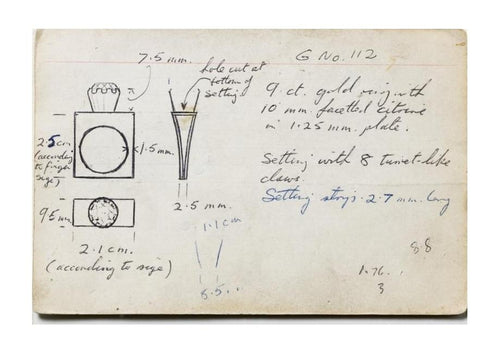 7.5 mm.
G No. 112
hole cut at
bottom of
setting
9 ct. gold ring with
10 mm facetted citrine
in 1.25 mm. plate.
2.5 cm.
(according
to finger
size)
1.5 mm.
Setting with 8 turret-like
claws.
Setting strips 2.7 mm. long
9.5 mm
2.5 mm.
1.1 cm
2.1 cm.
(according to size)
88
8.5
1.76.
3